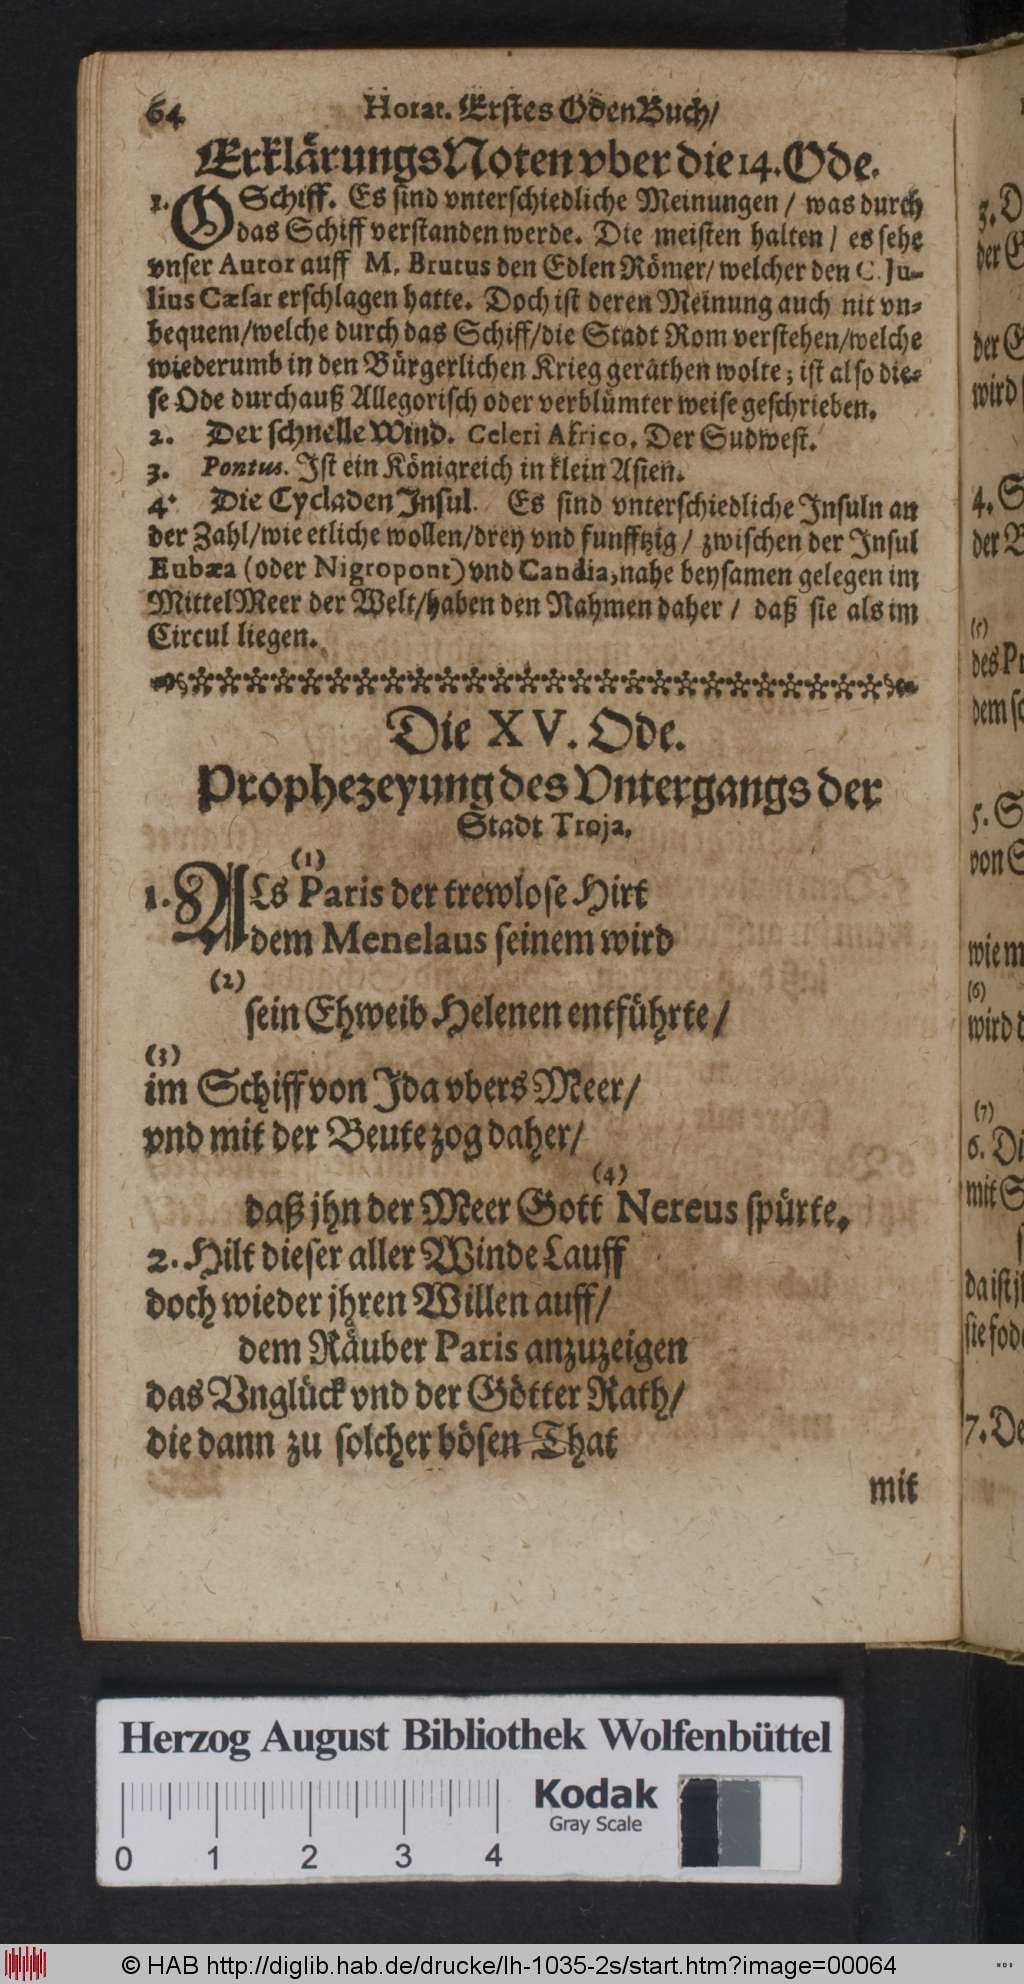 64 Horat. Erstes OdenBuch/
ErklärungsNoten vber die 14. Ode.
1. O Schiff. Es sind vnterschiedliche Meinungen / was durch
das Schiff verstanden werde. Die meisten halten / es sehe
vnser Autor auff M. Brutus den Edlen Römer/ welcher den C. Ju-
lius Cæsar erschlagen hatte. Doch ist deren Meinung auch nit vn-
bequem/welche durch das Schiff/die Stadt Rom verstehen/welche
wiederumb in den Bürgerlichen Krieg gerathen wolte; ist also die-
se Ode durchauß Allegorisch oder verblümter weise geschrieben.
2. Der schnelle Wind. Celeri Africo. Der Sudwest.
3. Pontus. Ist ein Königreich in klein Asien.
4. Die Cycladen Insul. Es sind vnterschiedliche Insuln an
der Zahl/wie etliche wollen/drey vnd funfftzig / zwischen der Insul
Eubæa (oder Nigropont) vnd Candia, nahe beysamen gelegen im
MittelMeer der Welt/haben den Nahmen daher / daß sie als im
Circul liegen.
Die XV. Ode.
Prophezeyung des Vntergangs der
Stadt Troja.
(1)
1. ALs Paris der trewlose Hirt
dem Menelaus seinem wird
(2)
sein Ehweib Helenen entführte /
(3)
im Schiff von Ida vbers Meer/
vnd mit der Beute zog daher/
(4)
daß jhn der Meer Gott Nereus spürte.
2. Hilt dieser aller Winde Lauff
doch wieder jhren Willen auff/
dem Räuber Paris anzuzeigen
das Vnglück vnd der Götter Rath/
die dann zu solcher bösen That
mit
3. D
der
der
wird
4. S
der
(5)
des
dem
5. S
von
wie
(6)
wird
(7)
6. Di
mit
da ist
sie
7. De
Herzog August Bibliothek Wolfenbüttel
Kodak
Gray Scale
0 1 2 3 4
© HAB http://diglib.hab.de/drucke/lh-1035-2s/start.htm?image=00064